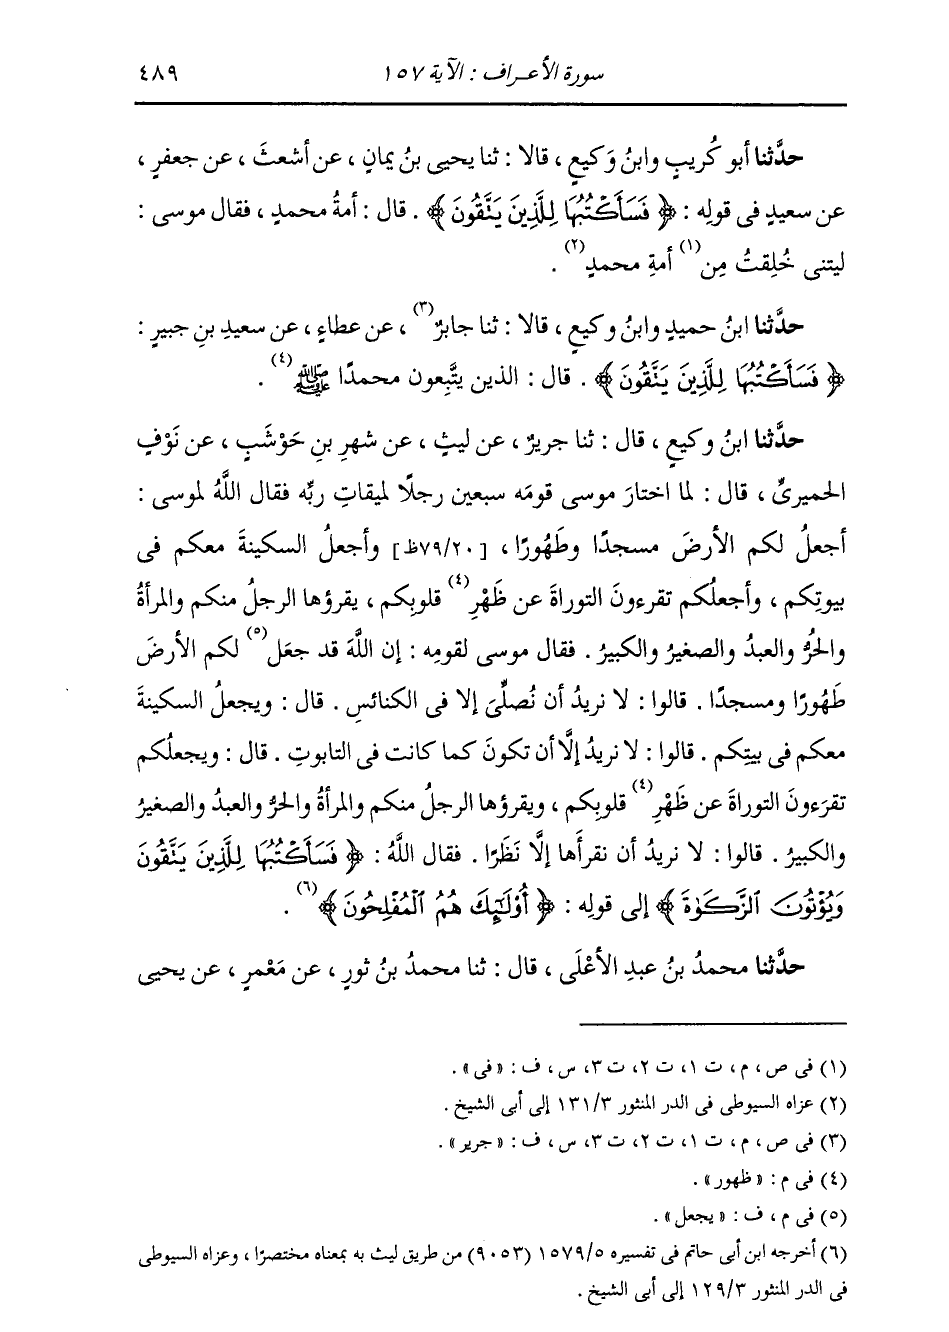 سورة الأعراف : الآية ١٥٧ ٤٨٩
حدَّثنا أبو كُريبٍ وابنُ وَكيعٍ ، قالا : ثنا يحيى بنُ يمانٍ ، عن أشعثَ ، عن جعفرٍ ،
عن سعيدٍ فى قولِه : ﴿ فَسَأَكْتُبُهَا لِلَّذِينَ يَتَّقُونَ ﴾ . قال : أمةُ محمدٍ ، فقال موسى :
ليتنى خُلِقتُ مِن(١) أمةِ محمدٍ(٢) .
حدَّثنا ابنُ حميدٍ وابنُ وكيعٍ ، قالا : ثنا جابرٌ(٣) ، عن عطاءٍ ، عن سعيدِ بنِ جبيرٍ :
﴿ فَسَأَكْتُبُهَا لِلَّذِينَ يَتَّقُونَ ﴾ . قال : الذين يتَّبِعون محمدًا ﷺ(٤) .
حدَّثنا ابنُ وكيعٍ ، قال : ثنا جريرٌ ، عن ليثٍ ، عن شهرِ بنِ حَوْشَبٍ ، عن نَوْفٍ
الحميرىِّ ، قال : لما اختارَ موسى قومَه سبعين رجلًا لميقاتِ ربِّه فقال اللَّهُ لموسى :
أجعلُ لكم الأرضَ مسجدًا وطَهُورًا ، [٧٩/٢٠ظ] وأجعلُ السكينةَ معكم فى
بيوتِكم ، وأجعلُكم تقرءونَ التوراةَ عن ظَهْرِ(٤) قلوبِكم ، يقرؤها الرجلُ منكم والمرأةُ
والحُرُّ والعبدُ والصغيرُ والكبيرُ . فقال موسى لقومِه : إن اللَّهَ قد جعَل(٥) لكم الأرضَ
طَهُورًا ومسجدًا . قالوا : لا نريدُ أن نُصلِّىَ إلا فى الكنائسِ . قال : ويجعلُ السكينةَ
معكم فى بيتِكم . قالوا : لا نريدُ إلَّا أن تكونَ كما كانت فى التابوتِ . قال : ويجعلُكم
تقرَءونَ التوراةَ عن ظَهْرِ(٤) قلوبِكم ، ويقرؤها الرجلُ منكم والمرأةُ والحرُّ والعبدُ والصغيرُ
والكبيرُ . قالوا : لا نريدُ أن نقرأَها إلَّا نَظَرًا . فقال اللَّهُ : ﴿ فَسَأَكْتُبُهَا لِلَّذِينَ يَتَّقُونَ
وَيُؤْتُونَ ٱلزَّكَوٰةَ ﴾ إلى قولِه : ﴿ أُوْلَٰٓئِكَ هُمُ ٱلْمُفْلِحُونَ ﴾(٦) .
حدَّثنا محمدُ بنُ عبدِ الأعْلَى ، قال : ثنا محمدُ بنُ ثورٍ ، عن مَعْمرٍ ، عن يحيى
(١) فى ص ، م ، ت ١ ، ت ٢ ، ت ٣ ، س ، ف : « فى » .
(٢) عزاه السيوطى فى الدر المنثور ١٣١/٣ إلى أبى الشيخ .
(٣) فى ص ، م ، ت ١ ، ت ٢ ، ت ٣ ، س ، ف : « جرير » .
(٤) فى م : « ظهور » .
(٥) فى م ، ف : « يجعل » .
(٦) أخرجه ابن أبى حاتم فى تفسيره ١٥٧٩/٥ (٩٠٥٣) من طريق ليث به بمعناه مختصرًا ، وعزاه السيوطى
فى الدر المنثور ١٢٩/٣ إلى أبى الشيخ .